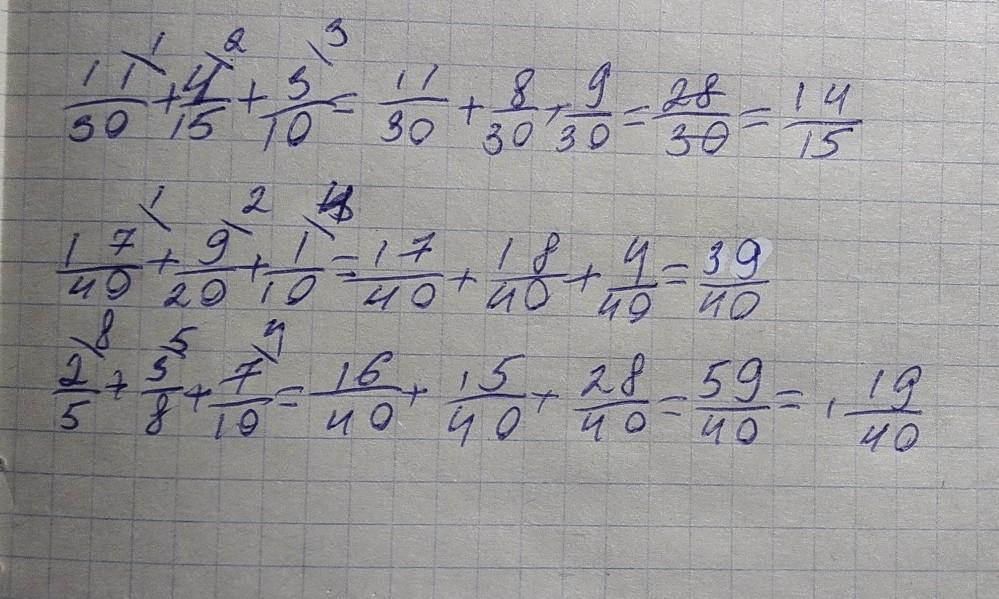 11/30 \1 + 4/15 \2 + 3/10 \3 = 11/30 + 8/30 + 9/30 = 28/30 = 14/15
17/40 \1 + 9/20 \2 + 1/10 \4 = 17/40 + 18/40 + 4/40 = 39/40
2/5 \8 + 3/8 \5 + 7/10 \4 = 16/40 + 15/40 + 28/40 = 59/40 = 1 19/40